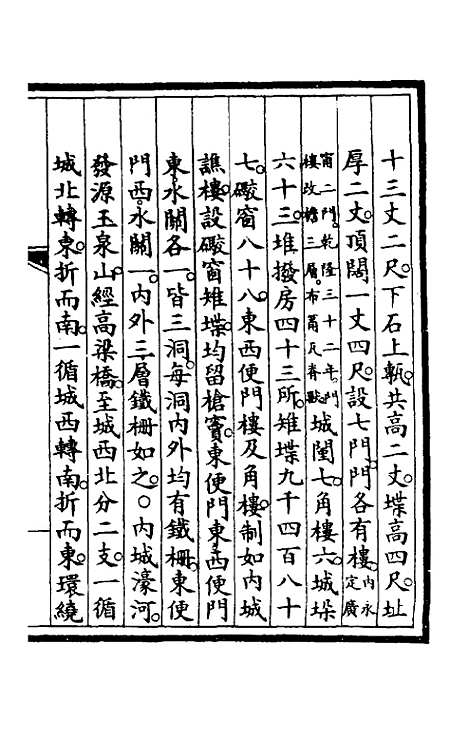 十三丈二尺。下石上甎。共高二丈。堞高四尺。址
厚二丈。頂闊一丈四尺。設七門。門各有樓。內永定廣
甯二門。乾隆三十二年。門樓改檐三層。布甬瓦脊獸。城闉七。角樓六。城垛
六十三。堆撥房四十三所。雉堞九千四百八十
七。礮窗八十八。東西便門樓及角樓。制如內城
譙樓。設礮窗雉堞。均留槍竇。東便門東。西便門
東。水關各一。皆三洞。每洞內外均有鐵柵。東便
門西。水關一。內外三層鐵柵如之。○內城濠河。
發源玉泉山。經高梁橋。至城西北分二支。一循
城北轉東。折而南。一循城西轉南。折而東。環繞